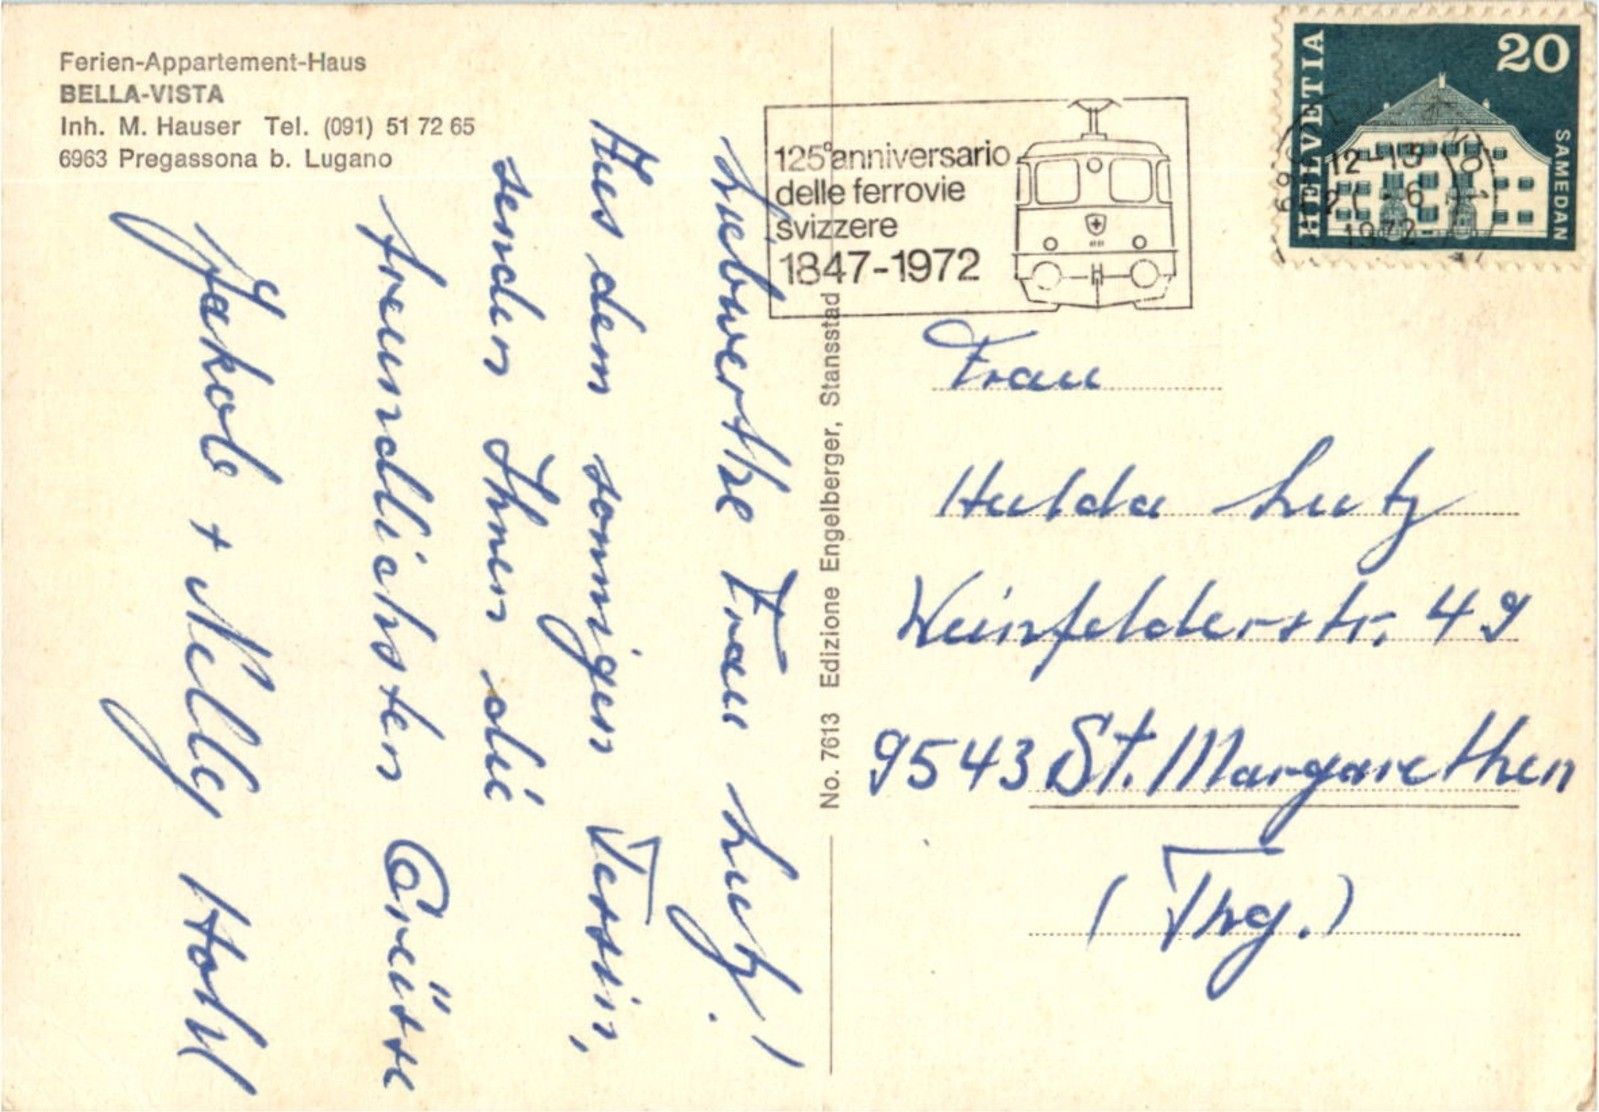 Ferien-Appartement-Haus
BELLA-VISTA
Inh. M. Hauser Tel. (091) 51 72 65
6963 Pregassona b. Lugano
Liebwerthe Frau Lutz!
Aus dem sonnigen Tessin,
senden Ihnen die
freundlichsten Grüsse
Jakob + Nelly Hohl
No. 7613 Edizione Engelberger, Stansstad
125° anniversario
delle ferrovie
svizzere
1847-1972
HELVETIA
20
SAMEDAN
12-13
-6
1972
Frau
Hulda Lutz
Weinfelderstr. 49
9543 St. Margarethen
(Thg.)